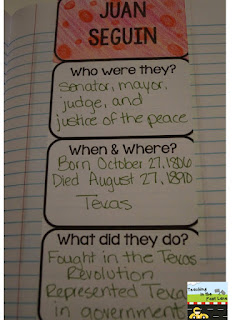 JUAN
SEGUIN
Who were they?
Senator, mayor,
judge, and
justice of the peace
When & Where?
Born October 27, 1806
Died August 27, 1890
Texas
What did they do?
Fought in the Texas
Revolution
Represented Texa
in government
Teaching
in the
Fast Lane